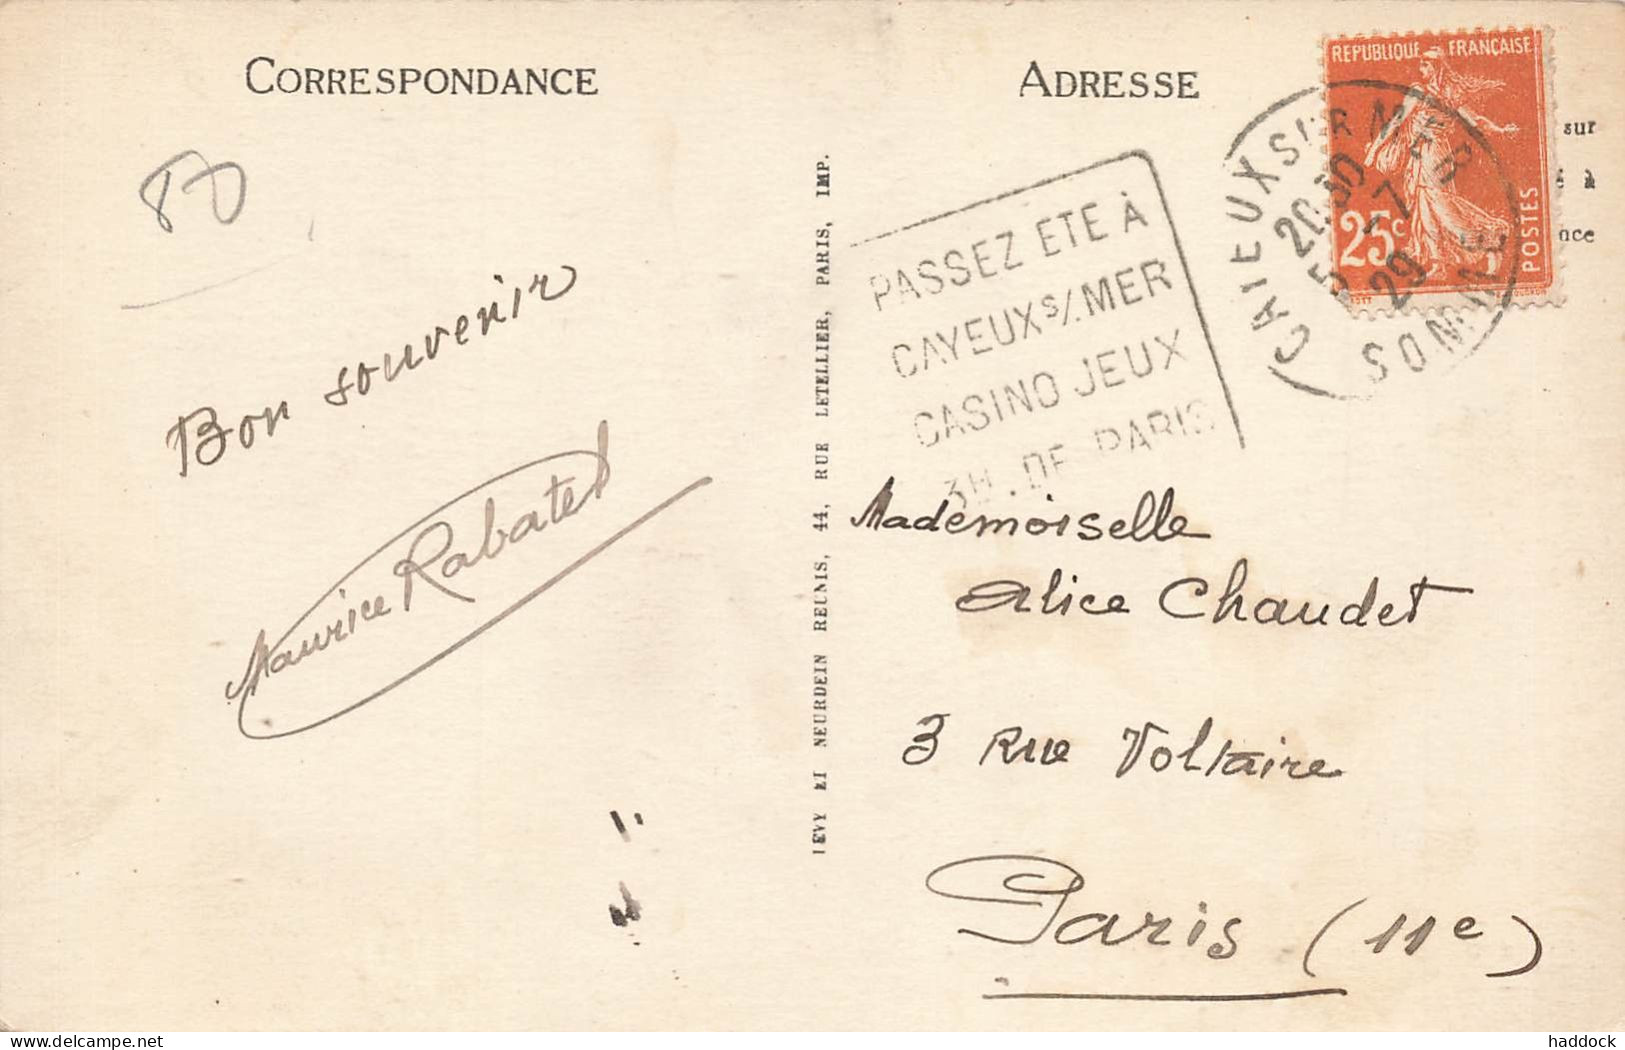 CORRESPONDANCE
80
Bon souvenir
Maurice Rabatel
LEVY ET NEURDEIN REUNIS, 44, RUE LETELLIER, PARIS, IMP.
ADRESSE
REPUBLIQUE FRANÇAISE
25c
POSTES
sur
é à
nce
CAIEUX SUR MER
20 30
5 -7
29
SOMME
PASSEZ ETE À
CAYEUX S/MER
CASINO JEUX
3H. DE PARIS
Mademoiselle
Alice Chaudet
3 Rue Voltaire
Paris (11e)
haddock